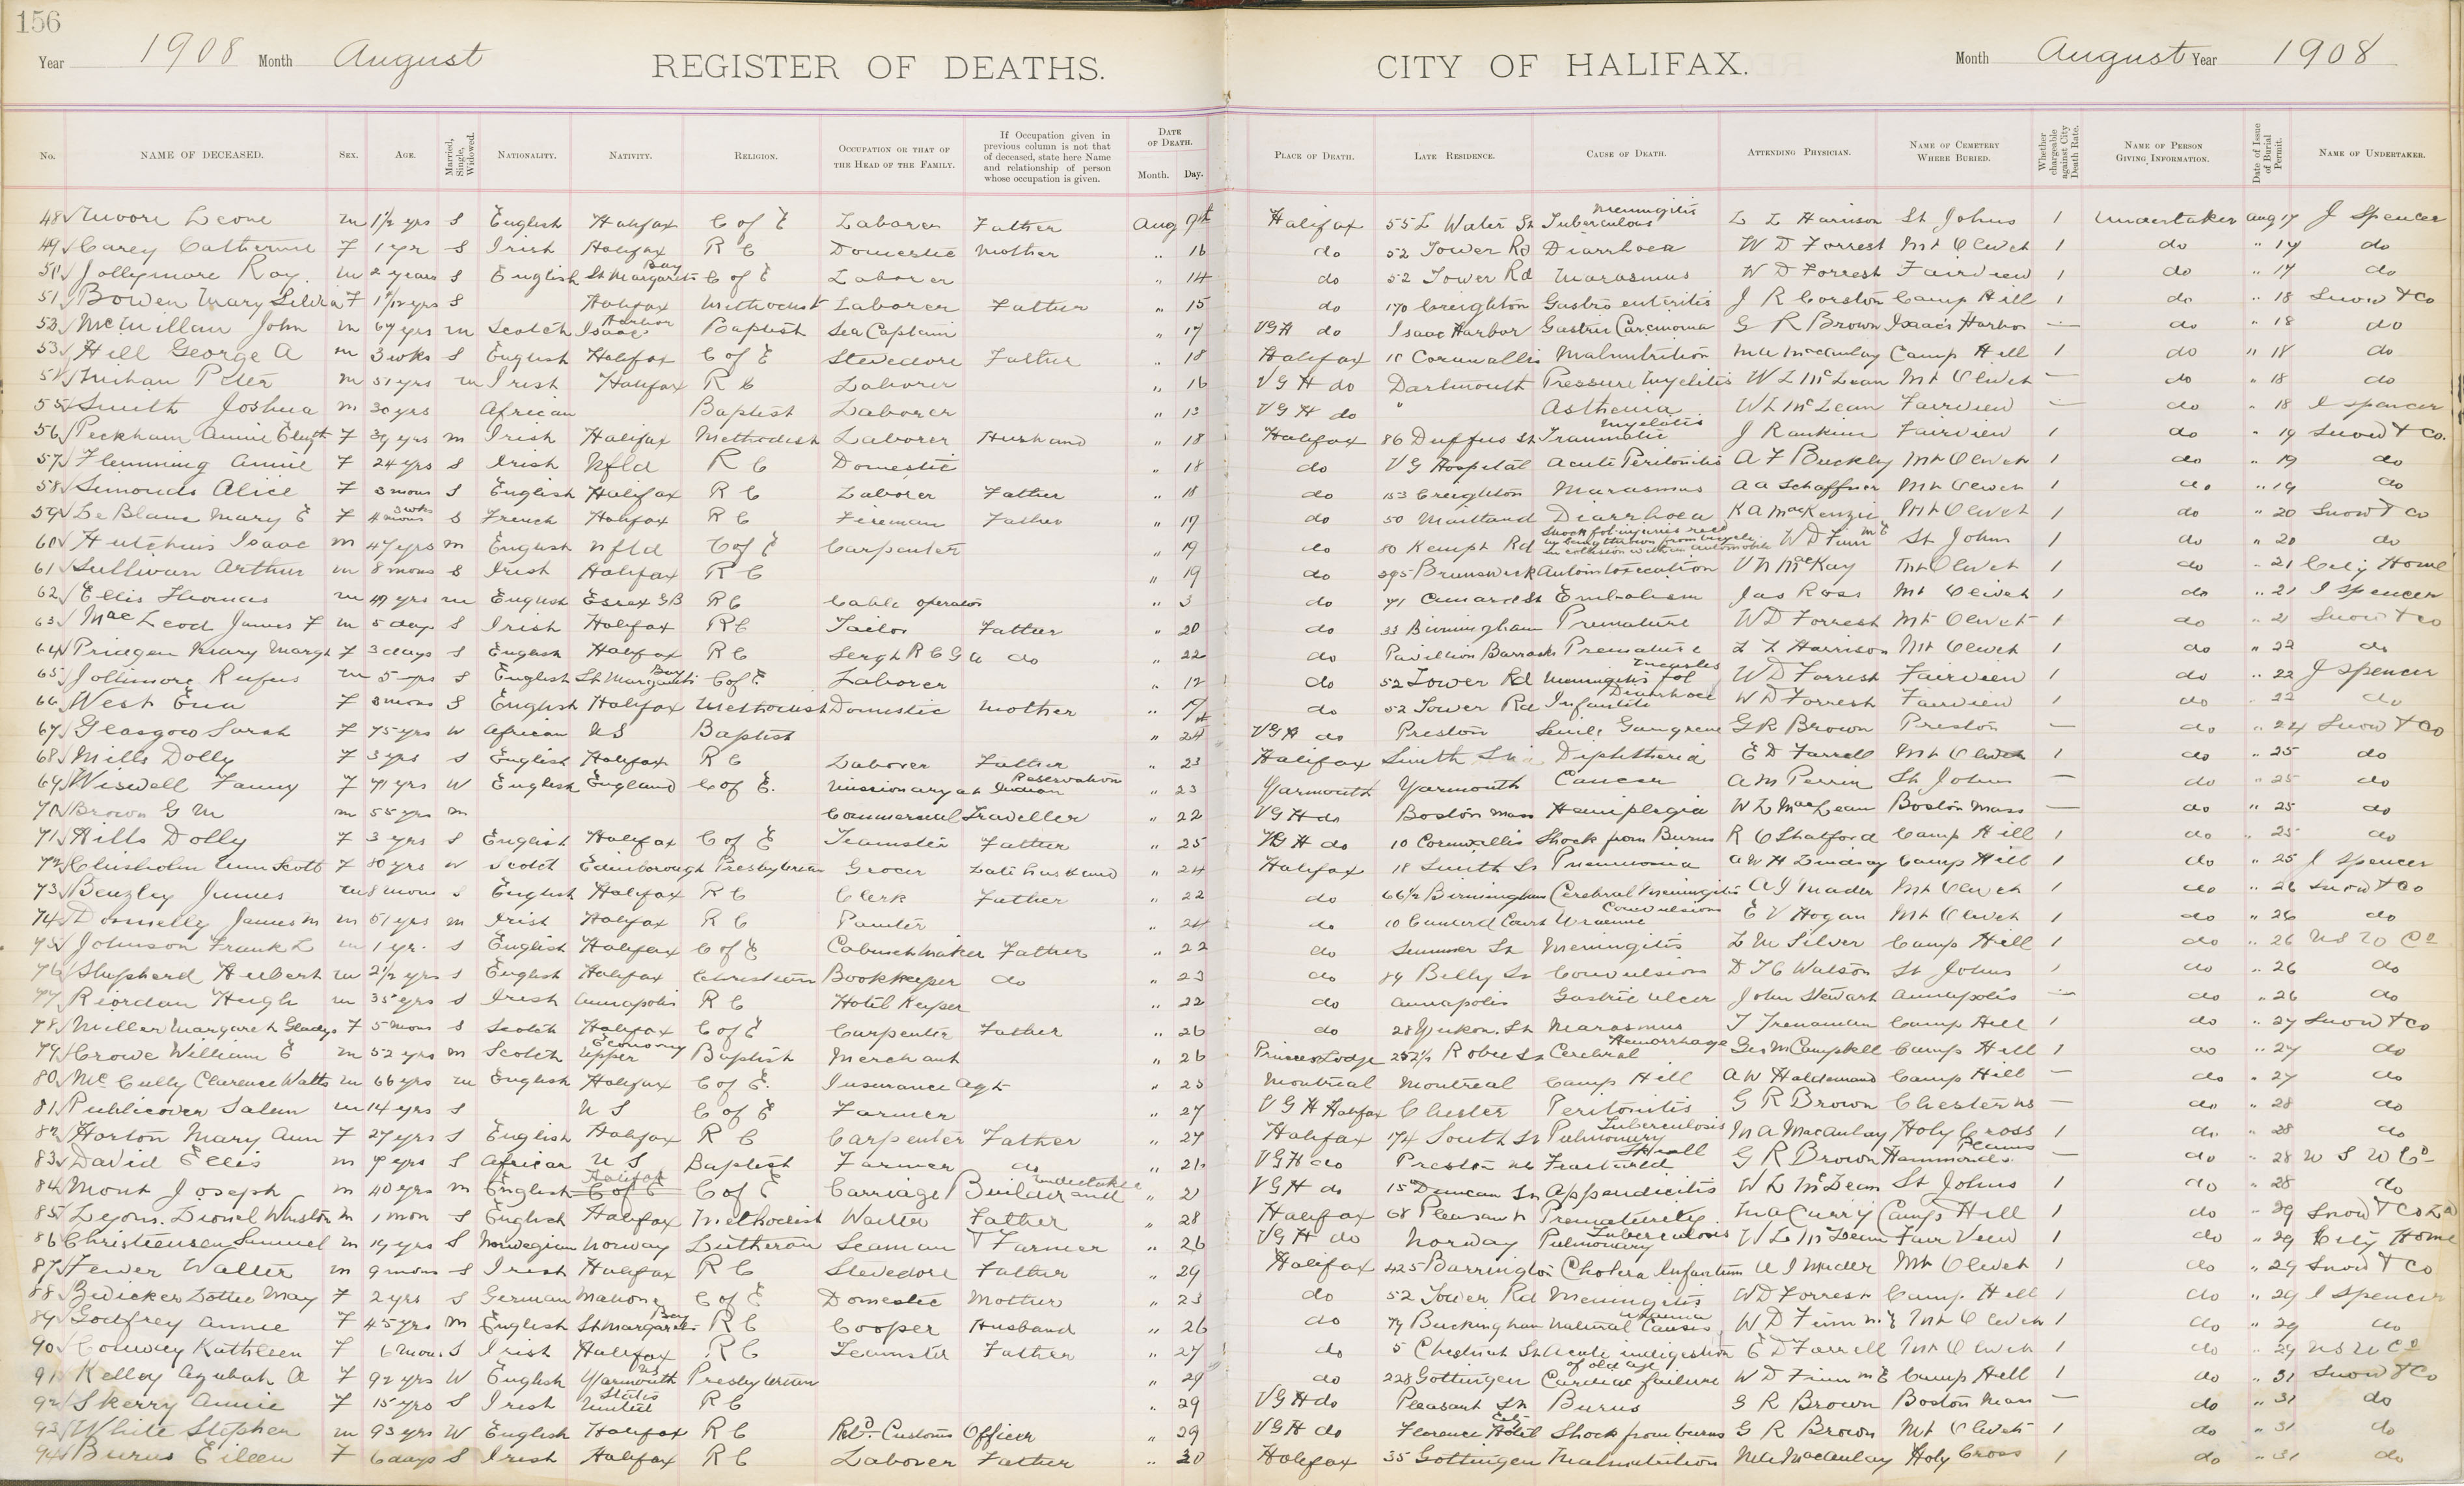 156
Year 1908 Month August REGISTER OF DEATHS. CITY OF HALIFAX. Month August Year 1908
No. NAME OF DECEASED. SEX. AGE. Married, Single, Widowed. NATIONALITY. NATIVITY. RELIGION. OCCUPATION OR THAT OF THE HEAD OF THE FAMILY. If Occupation given in previous column is not that of deceased, state here Name and relationship of person whose occupation is given. DATE OF DEATH. Month. Day. PLACE OF DEATH. LATE RESIDENCE. CAUSE OF DEATH. ATTENDING PHYSICIAN. NAME OF CEMETERY WHERE BURIED. Whether chargeable against City Death Rate. NAME OF PERSON GIVING INFORMATION. Date of Issue of Burial Permit. NAME OF UNDERTAKER.
48 Moore Leone m 1½ yrs S English Halifax C of E Laborer Father Aug 9th Halifax 55 Water St Tuberculous Meningitis L L Harrison St Johns 1 Undertaker Aug 17 J Spencer
49 Carey Catherine F 1 yr S Irish Halifax R C Domestic Mother " 16 do 52 Tower Rd Diarrhoea W D Forrest Mt Olivet 1 do " 17 do
50 Jollymore Roy m 2 years S English St Margarets Bay C of E Laborer " 14 do 52 Tower Rd Marasmus W D Forrest Fairview 1 do " 17 do
51 Bowen Mary F S Halifax Methodist Laborer Father " 15 do 170 Creighton Gastro enteritis J R Corston Camp Hill 1 do " 18 Snow & Co
52 McMillan John m 67 yrs m Scotch Isaacs Harbor Baptist Sea Captain " 17 VGH do Isaac Harbor Gastric Carcinoma G R Brown Isaacs Harbor — do " 18 do
53 Hill George A m 3 wks S English Halifax C of E Stevedore Father " 18 Halifax 10 Cornwallis Malnutrition M A MacAulay Camp Hill 1 do " 18 do
54 Peter m 51 yrs m Irish Halifax R C Laborer " 16 VGH do Dartmouth Pressure Myelitis W L McLean Mt Olivet — do " 18 do
55 Smith Joshua m 30 yrs African Baptist Laborer " 13 VGH do " Asthenia W L McLean Fairview — do " 18 J Spencer
56 Peckham Annie Elizth F 39 yrs m Irish Halifax Methodist Laborer Husband " 18 Halifax 86 Duffus St Traumatic Myelitis J Rankine Fairview 1 do " 19 Snow & Co.
57 Flemming Annie F 24 yrs S Irish Nfld R C Domestic " 18 do V G Hospital Acute Peritonitis A F Buckley Mt Olivet 1 do " 19 do
58 Simonds Alice F 3 mons S English Halifax R C Laborer Father " 18 do 153 Creighton Marasmus A A Schaffner Mt Olivet 1 do " 19 do
59 Le Blanc Mary E F 4 mons 3 wks S French Halifax R C Fireman Father " 19 do 50 Maitland Diarrhoea K A MacKenzie Mt Olivet 1 do " 20 Snow & Co
60 Hutchins Isaac m 47 yrs m English Nfld C of E Carpenter " 19 do 80 Kempt Rd Shock fol injuries recd by being thrown from bicycle in collision with an automobile W D Finn M E St Johns 1 do " 20 do
61 Sullivan Arthur m 8 mons S Irish Halifax R C " 19 do 395 Brunswick Autointoxication V N MacKay Mt Olivet 1 do " 21 City Home
62 Ellis Thomas m 49 yrs m English Essex GB R C Cable operator " 3 do 71 Cunard St Embolism Jas Ross Mt Olivet 1 do " 21 J Spencer
63 MacLeod James F m 5 days S Irish Halifax R C Tailor Father " 20 do 33 Birmingham Premature W D Forrest Mt Olivet 1 do " 21 Snow & Co
64 Pridgen Mary Margt F 3 days S English Halifax R C Sergt R C G A do " 22 do Pavillion Barracks Premature L L Harrison Mt Olivet 1 do " 22 do
65 Jollimore Rufus m 5 yrs S English St Margarets Bay C of E Laborer " 12 do 52 Tower Rd Meningitis fol Measles W D Forrest Fairview 1 do " 22 J Spencer
66 West Ena F 3 mons S English Halifax Methodist Domestic Mother " 19 do 52 Tower Rd Infantile Diarrhoea W D Forrest Fairview 1 do " 22 do
67 Glasgow Sarah F 75 yrs W African N S Baptist " 24 VGH do Preston Senile Gangrene G R Brown Preston — do " 24 Snow & Co
68 Mills Dolly F 3 yrs S English Halifax R C Laborer Father " 23 Halifax Smith St Diphtheria E D Farrell Mt Olivet 1 do " 25 do
69 Wiswell Fanny F 71 yrs W English England C of E. Missionary at Indian Reservation " 23 Yarmouth Yarmouth Cancer A M Perrin St Johns — do " 25 do
70 Brown G M m 55 yrs m Commercial Traveller " 22 VGH do Boston Mass Hemiplegia W L MacLean Boston Mass — do " 25 do
71 Hills Dolly F 3 yrs S English Halifax C of E Teamster Father " 25 VGH do 10 Cornwallis Shock from Burns R O Shatford Camp Hill 1 do " 25 do
72 Chisholm Ann Scott F 80 yrs W Scotch Edinborough Presbyterian Grocer Late husband " 24 Halifax 18 Smith St Pneumonia A W H Lindsay Camp Hill 1 do " 25 J Spencer
73 Beazley James m 8 mons S English Halifax R C Clerk Father " 22 do 66½ Birmingham Cerebral Meningitis A I Mader Mt Olivet 1 do " 26 Snow & Co
74 Donnelly James M m 51 yrs m Irish Halifax R C Painter " 24 do 10 Cunard Court Uraemic Convulsions E V Hogan Mt Olivet 1 do " 26 do
75 Johnson Frank L m 1 yr. S English Halifax C of E Cabinetmaker Father " 22 do Summer St Meningitis L M Silver Camp Hill 1 do " 26 N S U Co
76 Shepherd Herbert m 2½ yrs S English Halifax Christian Bookkeeper do " 23 do 89 Bilby St Convulsions D T C Watson St Johns 1 do " 26 do
77 Riordan Hugh m 35 yrs S Irish Annapolis R C Hotel Keeper " 22 do Annapolis Gastric ulcer John Stewart Annapolis — do " 26 do
78 Miller Margaret Gladys F 5 mons S Scotch Halifax C of E Carpenter Father " 26 do 28 Yukon St Marasmus T Trenaman Camp Hill 1 do " 27 Snow & Co
79 Crowe William E m 52 yrs m Scotch Upper Economy Baptist Merchant " 26 Princes Lodge 252½ Robie St Cerebral Hemorrhage Geo M Campbell Camp Hill 1 do " 27 do
80 McCully Clarence Watts m 66 yrs m English Halifax C of E. Insurance Agt " 25 Montreal Montreal Camp Hill A W Haldemand Camp Hill — do " 27 do
81 Publicover Salem m 14 yrs S N S C of E Farmer " 27 VGH Halifax Chester Peritonitis G R Brown Chester NS — do " 28 do
82 Horton Mary Ann F 27 yrs S English Halifax R C Carpenter Father " 27 Halifax 174 South St Pulmonary Tuberculosis M A MacAulay Holy Cross 1 do " 28 do
83 David Ellis m 9 yrs S African N S Baptist Farmer do " 21 VGH do Preston Fractured Skull G R Brown Hammonds Plains — do " 28 N S U Co
84 Mont Joseph m 40 yrs m English Halifax C of E Carriage Builder and Undertaker " 21 VGH do 15 Duncan St Appendicitis W L McLean St Johns 1 do " 28 do
85 Leyons. Lionel Winston m 1 mon S English Halifax Methodist Waiter Father " 28 Halifax 68 Pleasant Prematurity. M A Curry Camp Hill 1 do " 29 Snow & Co Ld
86 Christiensen Samuel m 19 yrs S Norwegian Norway Lutheran Seaman Farmer " 26 VGH do Norway Pulmonary Tuberculosis W L McLean Fair View 1 do " 29 City Home
87 Fewer Walter m 9 mons S Irish Halifax R C Stevedore Father " 29 Halifax 425 Barrington Cholera Infantum A I Mader Mt Olivet 1 do " 29 Snow & Co
88 Zwicker Lottie May F 2 yrs S German Mahone C of E Domestic Mother " 23 do 52 Tower Rd Meningitis W D Forrest Camp Hill 1 do " 29 J Spencer
89 Godfrey Annie F 45 yrs m English St Margarets Bay R C Cooper Husband " 26 do 79 Buckingham Natural Causes W D Finn M E Mt Olivet 1 do " 29 do
90 Conway Kathleen F 6 mons S Irish Halifax R C Teamster Father " 27 do 5 Chestnut St Acute indigestion E D Farrell Mt Olivet 1 do " 29 N S U Co
91 Kelley Azubah A F 92 yrs W English Yarmouth NS Presbyterian " 29 do 228 Gottingen Cardiac failure of old age W D Finn M E Camp Hill 1 do " 31 Snow & Co
92 Skerry Annie F 15 yrs S Irish United States R C " 29 VGH do Pleasant St Burns G R Brown Boston Mass — do " 31 do
93 White Stephen m 93 yrs W English Halifax R C Retd. Customs Officer " 29 VGH do Florence Hotel Shock from burns G R Brown Mt Olivet 1 do " 31 do
94 Burns Eileen F 6 days S Irish Halifax R C Laborer Father " 30 Halifax 35 Gottingen Malnutrition M A MacAulay Holy Cross 1 do " 31 do